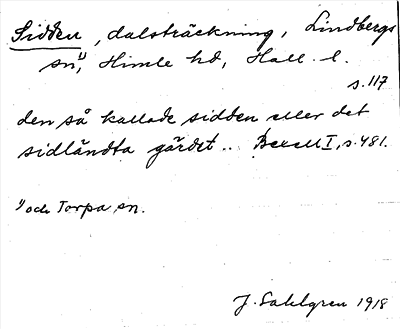 Sidden, dalsträckning, Lindbergs
sn¹⁾, Himle hd, Hall. l.
s. 117
den så kallade sidden eller det
sidländta gärdet.. Bexell I, s. 481.
¹⁾ och Torpa sn.
J. Sahlgren 1918